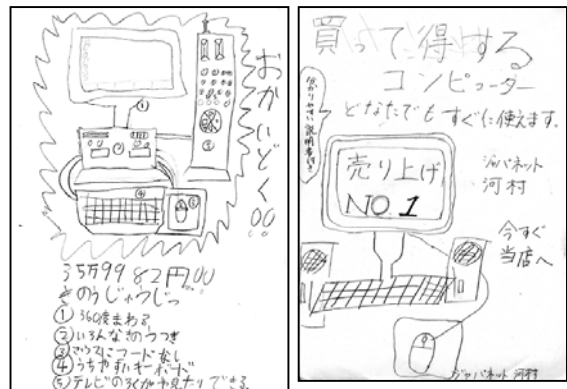 おかいどく
35万9982円
きのうじゅうじつ
① 360度まわる
② いろんなきのうつき
③ マウスにコードなし
④ うちやすいキーボード
⑤ テレビのろくが や見たりできる。
買って得する
コンピューター
どなたでもすぐに使えます。
分かりやすい説明書付き
売り上げ
NO.1
ジャパネット
河村
今すぐ
当店へ
ジャパネット 河村